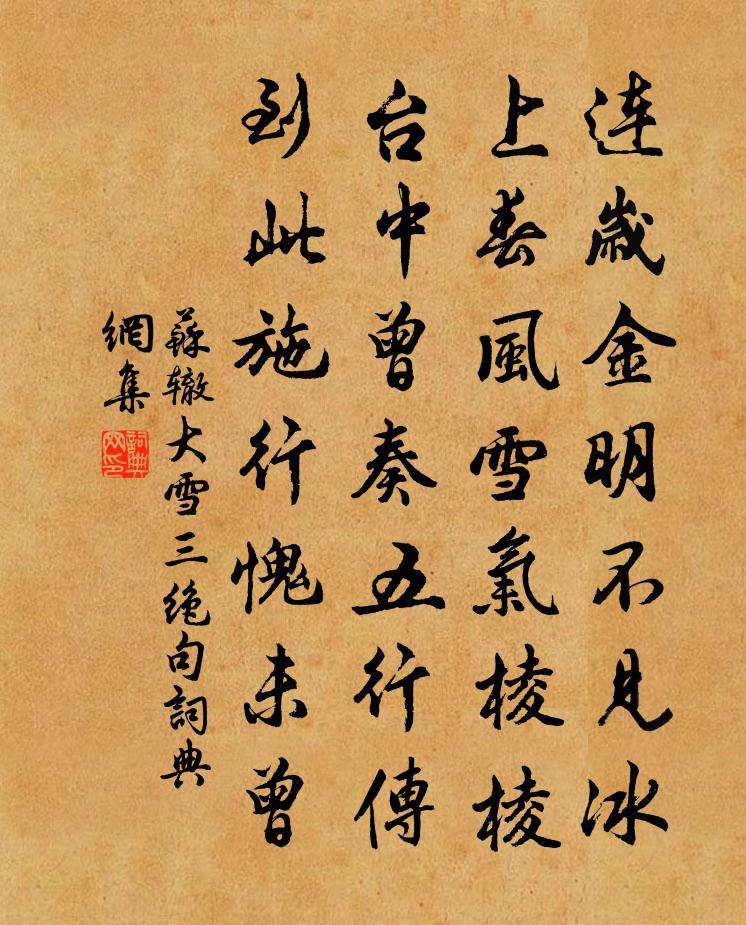 连歲金明不見冰
上春風雪氣棱棱
台中曾奏五行傳
到此施行愧未曾
蘇辙大雪三绝句詞典
網集
詞典
网印